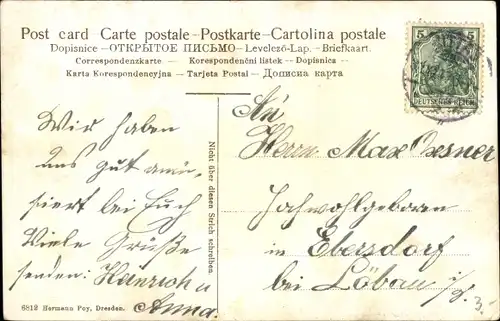 Post card Carte postale - Postkarte - Cartolina postale
Dopisnice - ОТКРЫТОЕ ПИСЬМО - Levelező-Lap. - Briefkaart.
Correspondenzkarte - Korespondenční lístek - Dopisnica -
Karta Korespondencyjna - Tarjeta Postal - Дописна карта
5 5
DEUTSCHES REICH
Wir haben
uns gut amü-
siert bei Euch
Viele Grüße
senden: Heinrich u
Anna.
Nicht über diesen Strich schreiben.
An
Herrn Max Oesner
Hochwohlgeboren
in Ebersdorf
bei Löbau i/S.
3.
6812 Hermann Poy, Dresden.